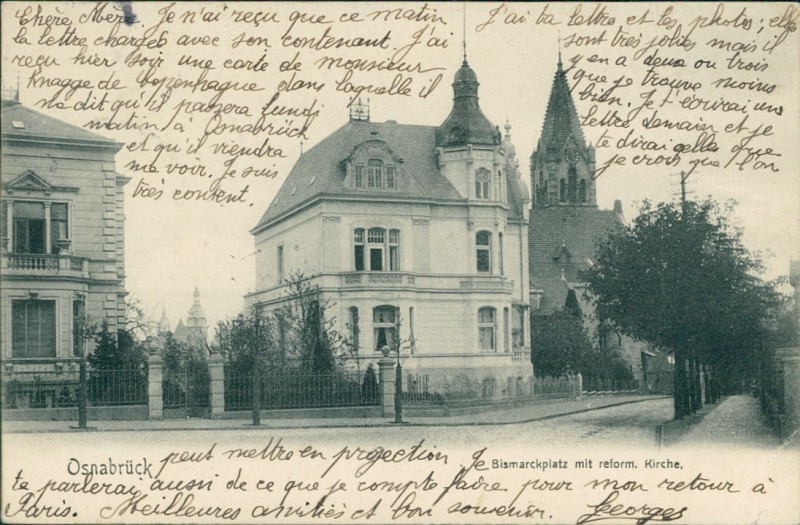 Chère Mère. Je n'ai reçu que ce matin
la lettre chargée avec son contenant. J'ai
reçu hier soir une carte de monsieur
Knagge de Copenhague dans laquelle il
me dit qu'il passera lundi
matin à Osnabrück
et qu'il viendra
me voir. Je suis
très content.
J'ai ta lettre et les photos; elles
sont très jolies mais il
y en a deux ou trois
que je trouve moins
bien. Je t'écrirai une
lettre demain et je
te dirai celle que
je crois que l'on
Osnabrück
peut mettre en projection. Je
Bismarckplatz mit reform. Kirche.
te parlerai aussi de ce que je compte faire pour mon retour à
Paris. Meilleures amitiés et bon souvenir. Georges